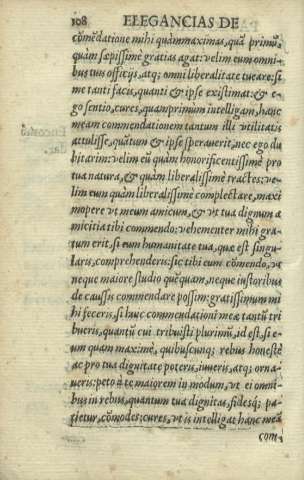 108 ELEGANCIAS DE
cõmẽdatione mihi quàm maximas, quã primũ,
quàm sæpissimè gratias agat: velim eum omni-
bus tuis officijs, atq; omni liberalitate tueare: si
me tanti facis, quanti & ipse existimat: & e-
go sentio, cures, quamprimùm intelligam, hanc
meam commendationem tantum illi vtilitatis
attulisse, quãtum & ipse sperauerit, nec ego du
bitarim: velim eũ quàm honorificentissimè pro
tua natura, & quàm liberalissimè tractes: ve-
lim eum quàm liberalissimè complectare, maxi
mopere vt meum amicum, & vt tua dignum a
micitia tibi commendo: vehementer mihi gra-
tum erit, si eum humanitate tua, quæ est singu-
laris, comprehenderis: sic tibi eum cõmendo, vt
neque maiore studio quẽquam, neque iustoribus
de caussis commendare possim: gratissimum mi
hi feceris, si huic commendationi meæ tantũ tri
bueris, quantũ cui tribuisti plurimũ, id est, si e-
um quam maximè, quibuscunq; rebus honestè
ac pro tua dignitate poteris, iuueris, atq; orna-
ueris: peto à te maiorem in modum, vt ei omni
bus in rebus, quantum tua dignitas, fidesq; pa-
tietur, cõmodes: cures, vt is intelligat hanc meã
com-